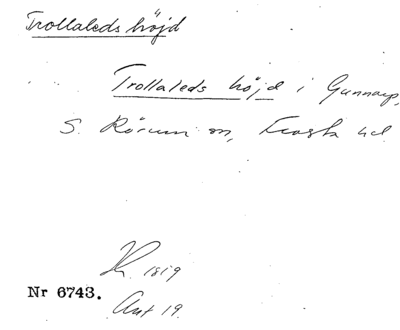 Trollaleds höjd
Trollaleds höjd i Gunnarp,
S. Rörum sn, Frosta hd
1819
Nr 6743.
Ant 19.